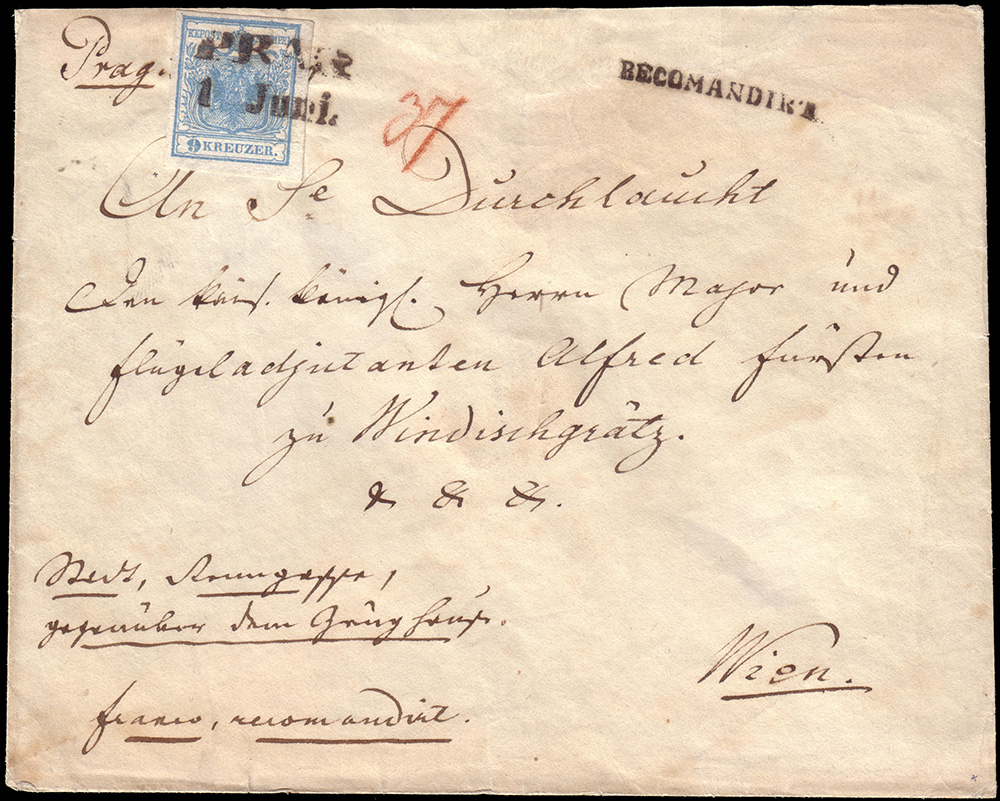 Prag.
KKPOST-STEMPEL
9 KREUZER.
PRAG
1 Juni.
37
RECOMANDIRT.
An Se Durchlaucht
Den kais. königl. Herrn Major und
Flügeladjutanten Alfred Fürsten
zu Windischgrätz.
& & &.
Stadt, Renngasse,
gegenüber dem Zeughause.
Wien.
franco, recomandirt.